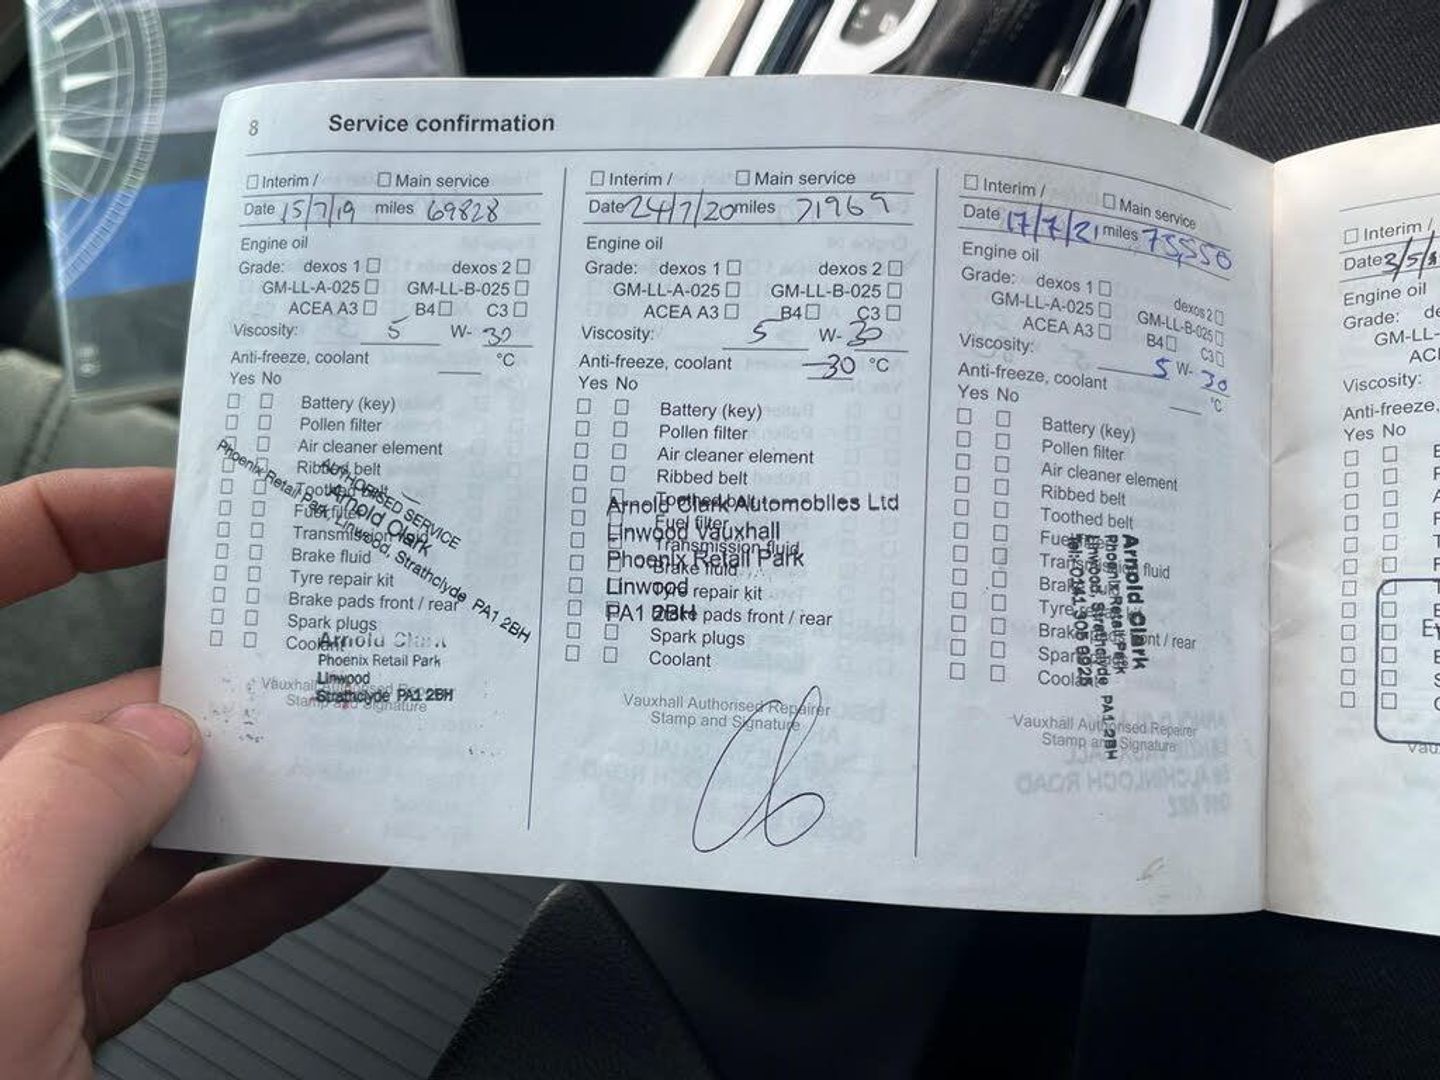 8 Service confirmation
☐ Interim / ☐ Main service
Date 15/7/19 miles 69828
Engine oil
Grade: dexos 1 ☐ dexos 2 ☐
GM-LL-A-025 ☐ GM-LL-B-025 ☐
ACEA A3 ☐ B4 ☐ C3 ☐
Viscosity: 5 W- 30
Anti-freeze, coolant °C
Yes No
☐ ☐ Battery (key)
☐ ☐ Pollen filter
☐ ☐ Air cleaner element
☐ ☐ Ribbed belt
☐ ☐ Toothed belt
☐ ☐ Fuel filter
☐ ☐ Transmission fluid
☐ ☐ Brake fluid
☐ ☐ Tyre repair kit
☐ ☐ Brake pads front / rear
☐ ☐ Spark plugs
☐ ☐ Coolant
AUTHORISED SERVICE
Arnold Clark
Phoenix Retail Park, Linwood, Strathclyde PA1 2BH
Arnold Clark
Phoenix Retail Park
Linwood
Strathclyde PA1 2BH
Vauxhall Authorised Repairer
Stamp and Signature
☐ Interim / ☐ Main service
Date 24/7/20 miles 71969
Engine oil
Grade: dexos 1 ☐ dexos 2 ☐
GM-LL-A-025 ☐ GM-LL-B-025 ☐
ACEA A3 ☐ B4 ☐ C3 ☐
Viscosity: 5 W- 30
Anti-freeze, coolant -30 °C
Yes No
☐ ☐ Battery (key)
☐ ☐ Pollen filter
☐ ☐ Air cleaner element
☐ ☐ Ribbed belt
☐ ☐ Toothed belt
☐ ☐ Fuel filter
☐ ☐ Transmission fluid
☐ ☐ Brake fluid
☐ ☐ Tyre repair kit
☐ ☐ Brake pads front / rear
☐ ☐ Spark plugs
☐ ☐ Coolant
Arnold Clark Automobiles Ltd
Linwood Vauxhall
Phoenix Retail Park
Linwood
PA1 2BH
Vauxhall Authorised Repairer
Stamp and Signature
☐ Interim / ☐ Main service
Date 17/7/21 miles 73,550
Engine oil
Grade: dexos 1 ☐ dexos 2 ☐
GM-LL-A-025 ☐ GM-LL-B-025 ☐
ACEA A3 ☐ B4 ☐ C3 ☐
Viscosity: 5 W- 30
Anti-freeze, coolant °C
Yes No
☐ ☐ Battery (key)
☐ ☐ Pollen filter
☐ ☐ Air cleaner element
☐ ☐ Ribbed belt
☐ ☐ Toothed belt
☐ ☐ Fuel
☐ ☐ Transmission fluid
☐ ☐ Brake
☐ ☐ Tyre
☐ ☐ Brake front / rear
☐ ☐ Spark
☐ ☐ Coolant
Arnold Clark
Phoenix Retail Park
Linwood, Strathclyde PA1 2BH
Tel: 0141 305 8925
Vauxhall Authorised Repairer
Stamp and Signature
☐ Interim /
Date 3/5/
Engine oil
Grade:
GM-LL-
Viscosity:
Anti-freeze,
Yes No